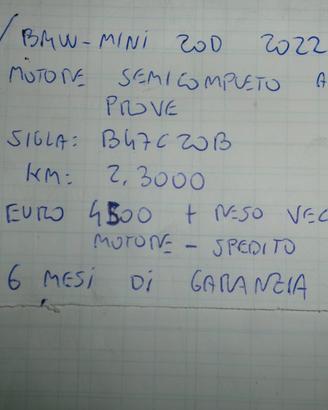 BMW-MINI 20D 2022
MOTORE SEMICOMPLETO A
PROVE
SIGLA: B47C20B
KM: 2,3000
EURO 4500 + RESO VEC
MOTORE - SPEDITO
6 MESI DI GARANZIA